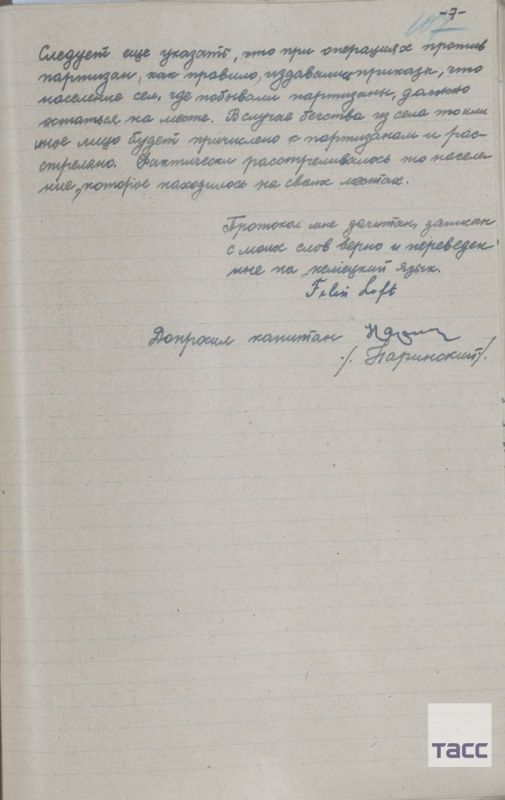 -7-
107
Следует еще указать, что при операциях против
партизан, как правило, издавались приказы, что
население сел, где побывали партизаны, должно
остаться на месте. В случае бегства из села то или
иное лицо будет причислено к партизанам и рас-
стреляно. Фактически расстреливалось то населе-
ние, которое находилось на своих местах.
Протокол мне зачитан, записан
с моих слов верно и переведен
мне на немецкий язык.
Допросил капитан
/. Паринский/.
ТАСС